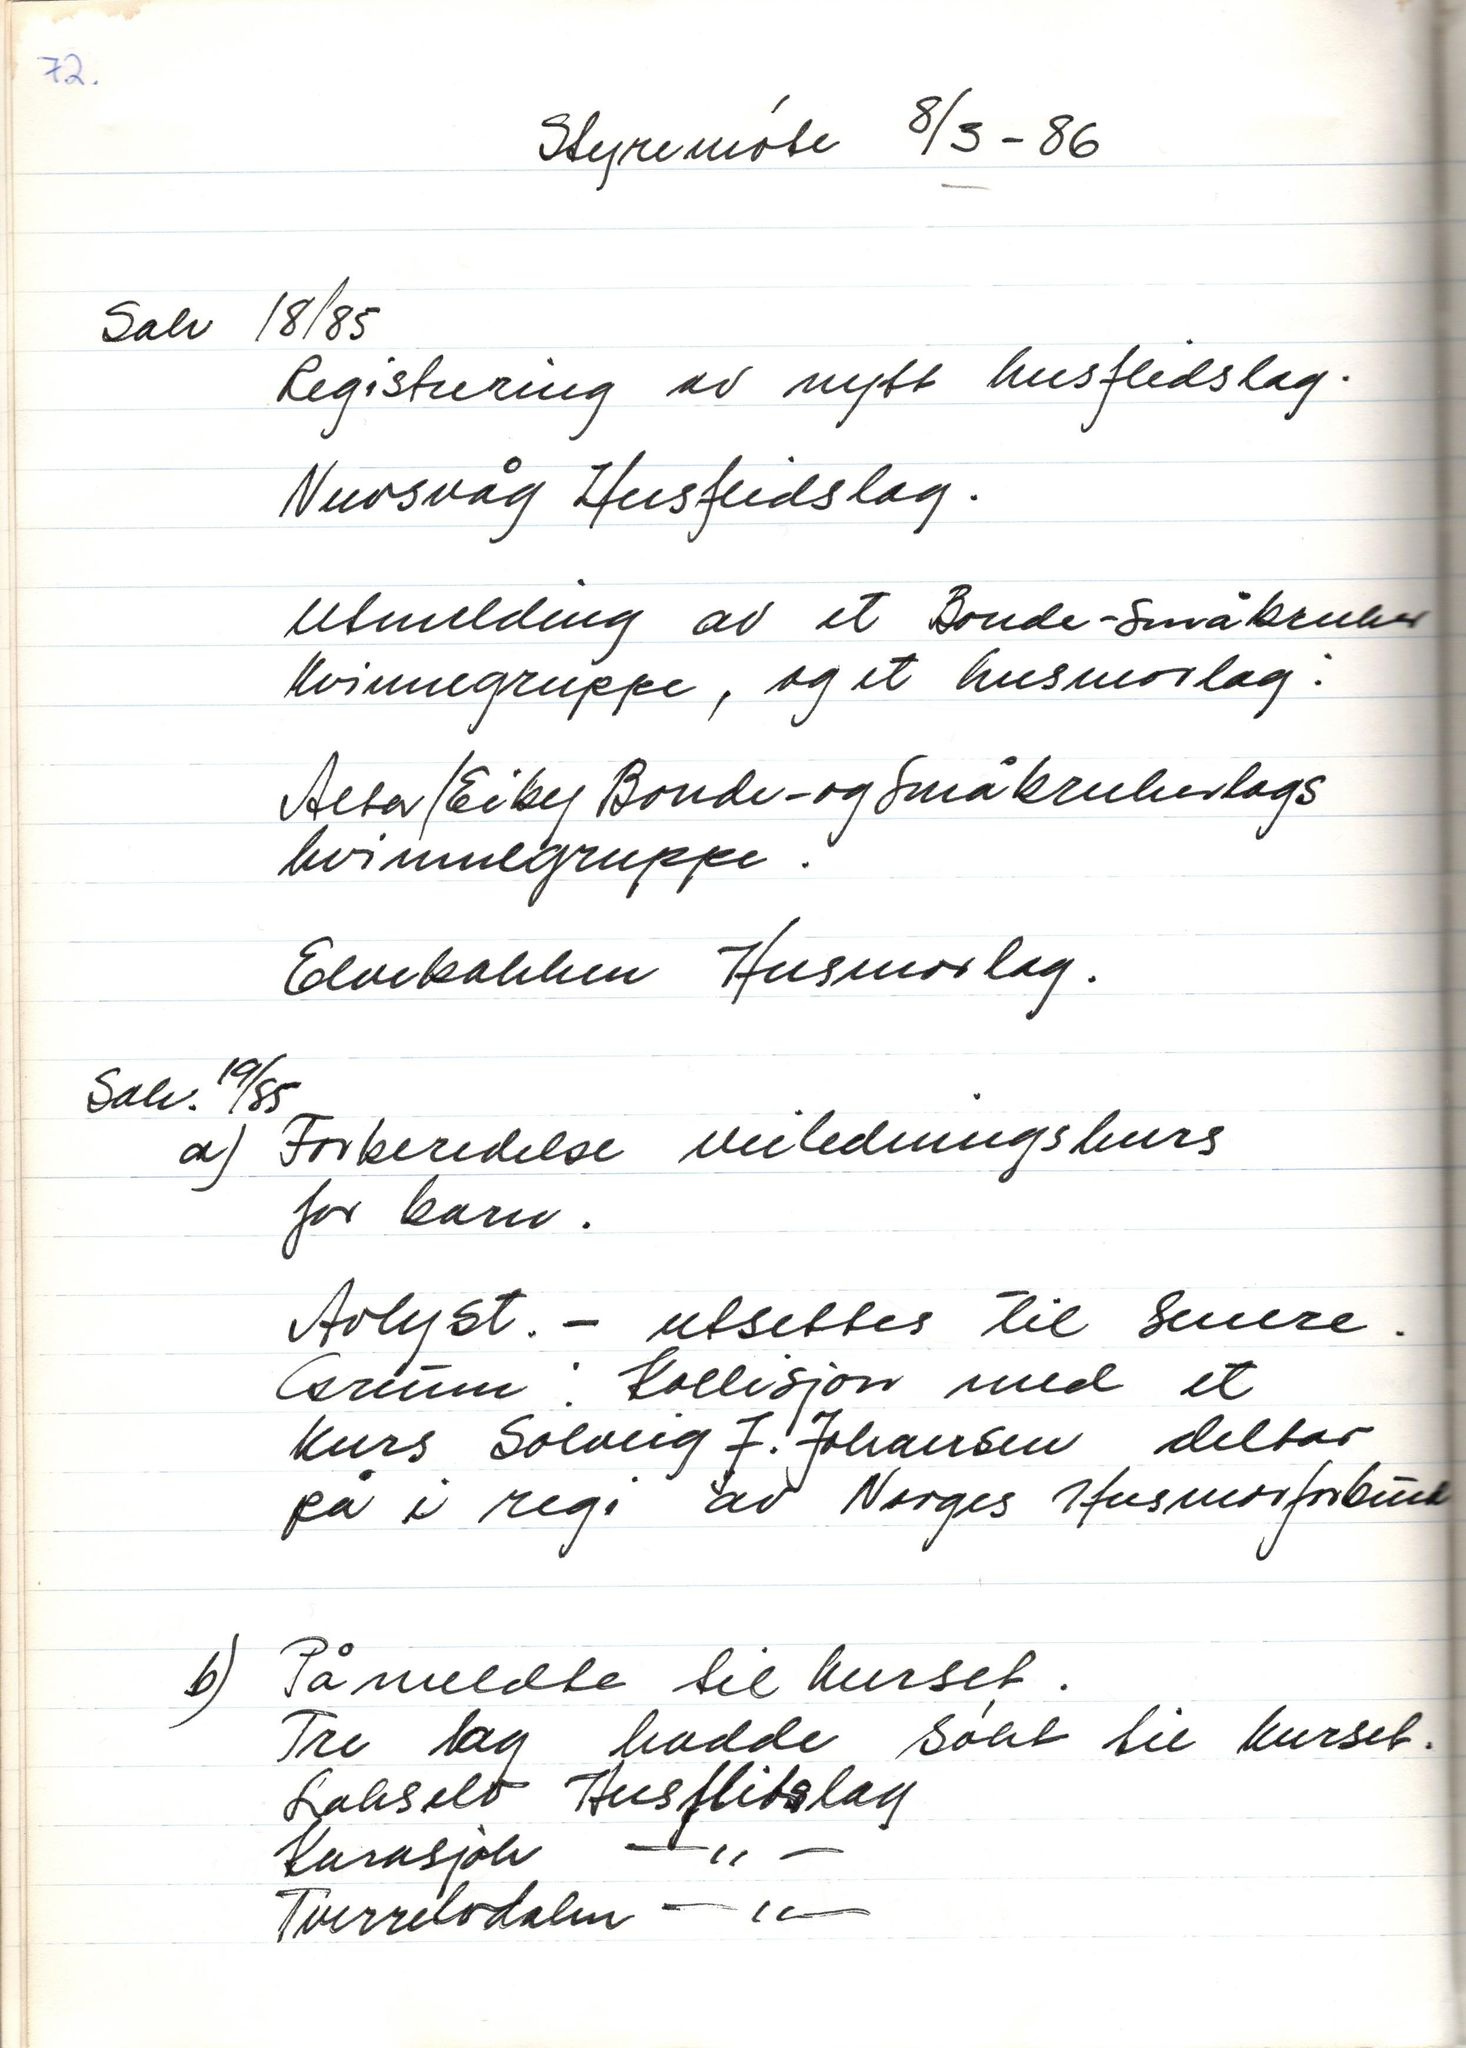 72.
Styremóte 8/3-86
Sak 18/85
Registrering av nytt husflidslag.
Nuvsvåg Husflidslag.
Utmelding av et Bonde-Småbruker
Kvinnegruppe, og et husmorlag:
Alta/Eiby Bonde-og Småbrukerlags
kvinnegruppe.
Elvebakken Husmorlag.
Sak. 19/85
a) Forberedelse veiledningskurs
for barn.
Avlyst. - utsettes til senere.
Grunn: Kollisjon med et
kurs Solveig J. Johansen deltar
på i regi av Norges Husmorforbund
b) Påmeldte til kurset.
Tre lag hadde sókt til kurset.
Lakselv Husflidslag
Karasjok -〃-
Tverrelvdalen -〃-